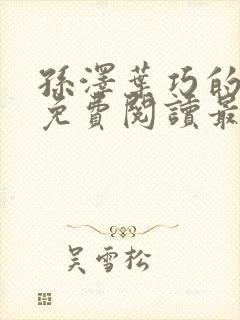 孫澤葉巧的
免費閱讀最
吳雪松